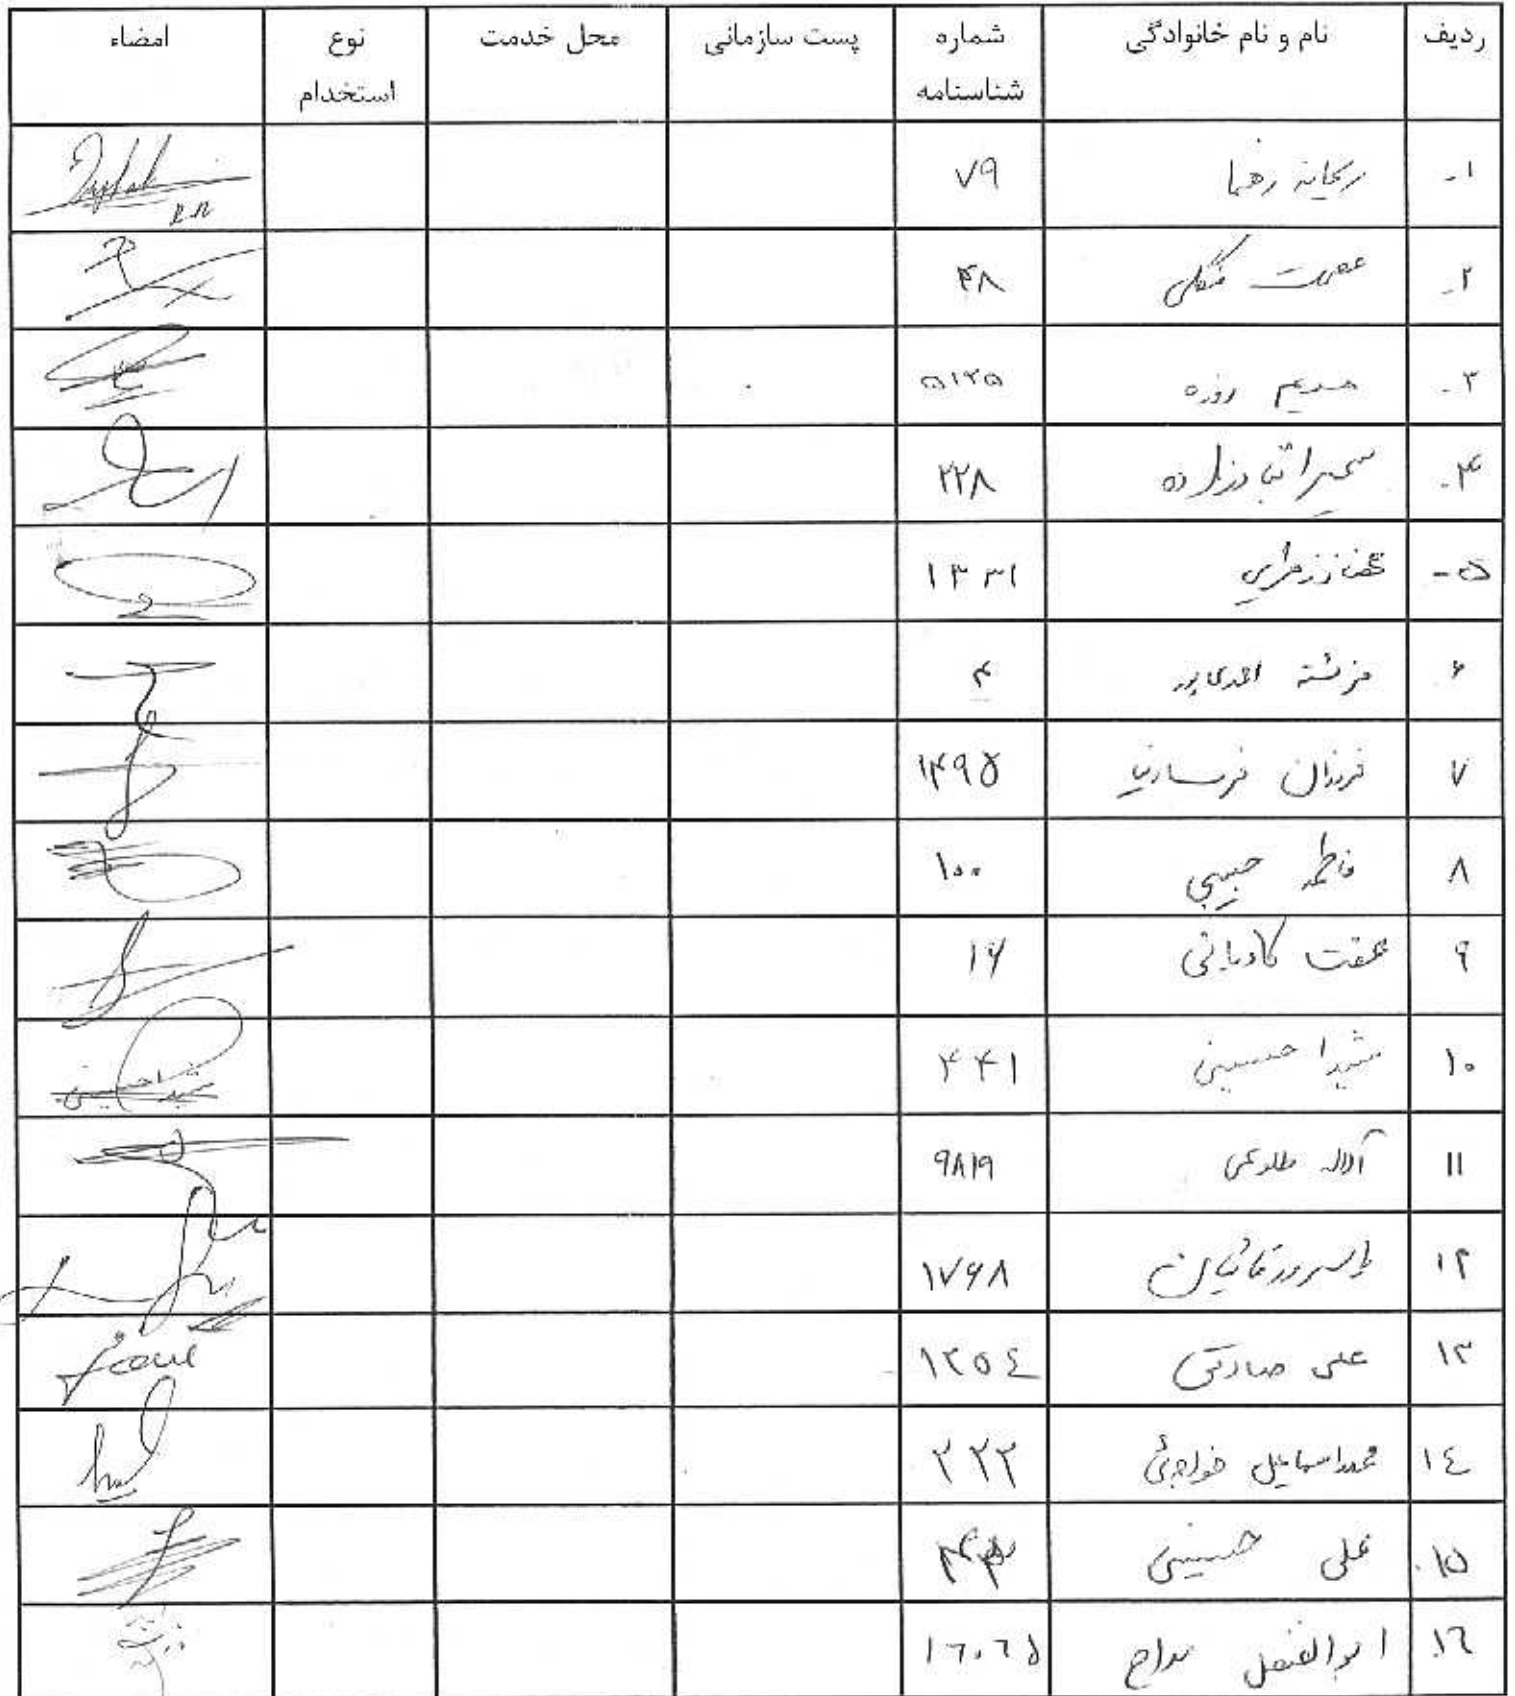 ردیف نام و نام خانوادگی شماره شناسنامه پست سازمانی محل خدمت نوع استخدام امضاء
۱- ریحانه رهنما ۷۹
۲- عصمت ۴۸
۳- مریم روزه ۵۱۲۵
۴- سمیرا ۲۲۸
۵- ۱۳۳۱
۶ فرشته احمدی پور ۴
۷ فرزان فرسادنیا ۱۴۹۵
۸ فاطمه حبیبی ۱۰۰
۹ عفت کاویانی ۱۶
۱۰ شیدا حسینی ۴۴۱ شیدا حسینی
۱۱ آلاله طلوعی ۹۸۱۹
۱۲ ۱۷۶۸
۱۳ علی صادقی ۱۲۵٤
۱٤ محمداسماعیل خواجوئی ۲۲۳
۱۵- علی حسینی
۱٦- ابوالفضل مداح ۱٦۰٦۵